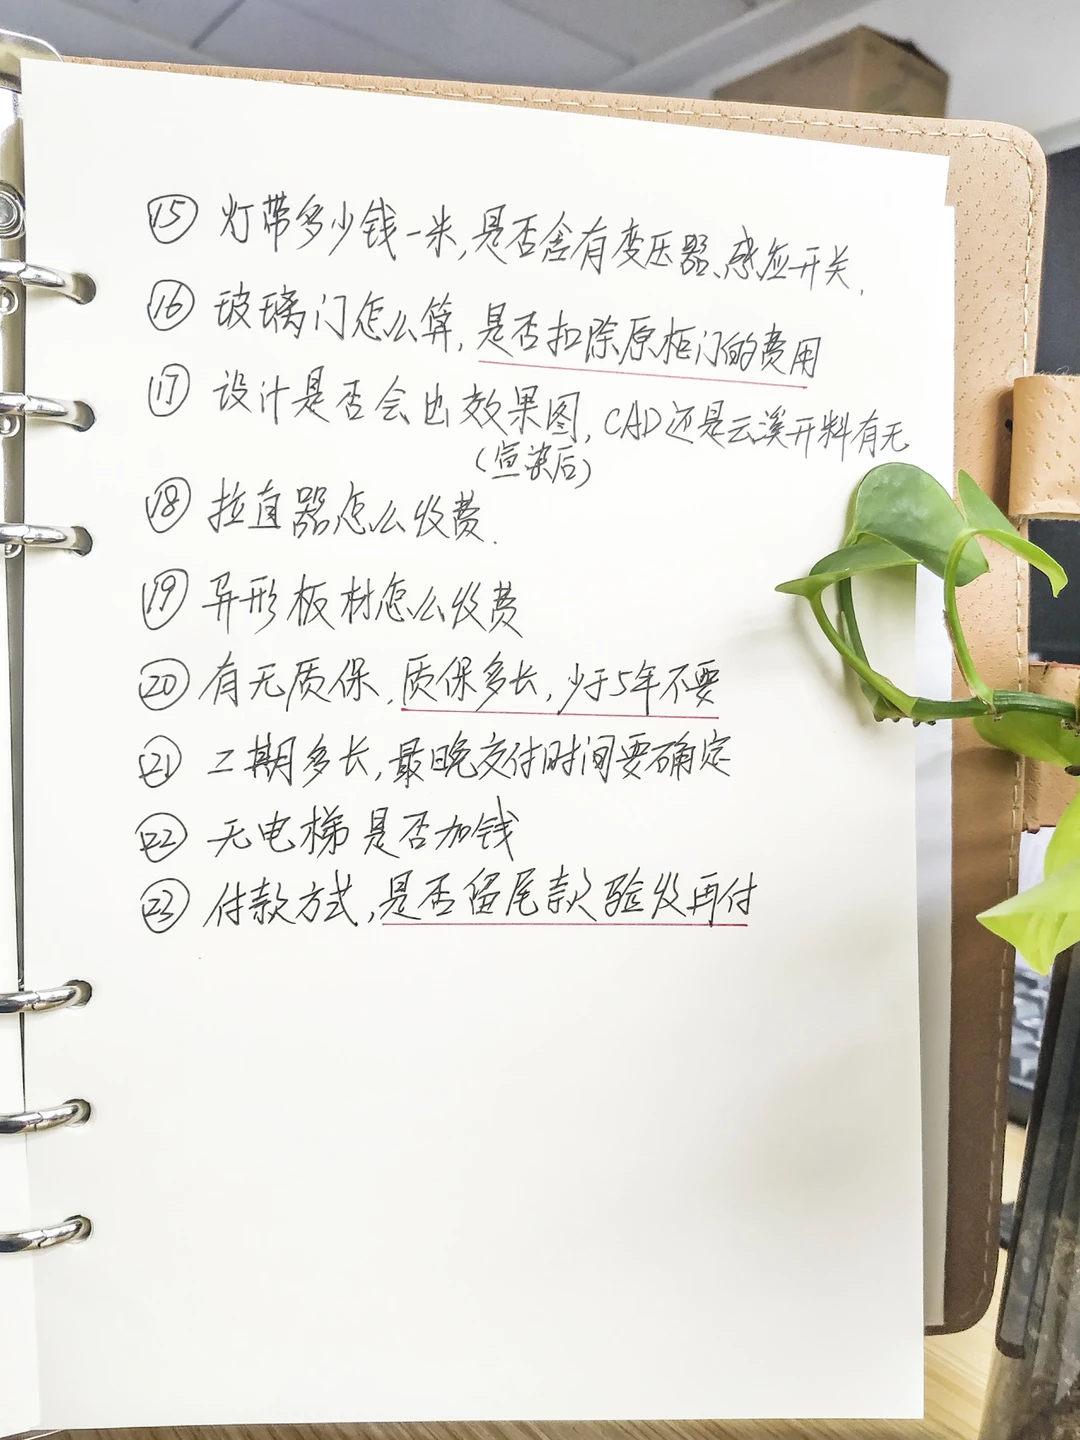 ⑮ 灯带多少钱一米,是否含有变压器、感应开关,
⑯ 玻璃门怎么算,是否扣除原柜门的费用
⑰ 设计是否会出效果图,CAD还是云溪开料有无
(宣染后)
⑱ 拉直器怎么收费.
⑲ 异形板材怎么收费
⑳ 有无质保,质保多长,少于5年不要
㉑ 工期多长,最晚交付时间要确定
㉒ 无电梯是否加钱
㉓ 付款方式,是否留尾款验收再付